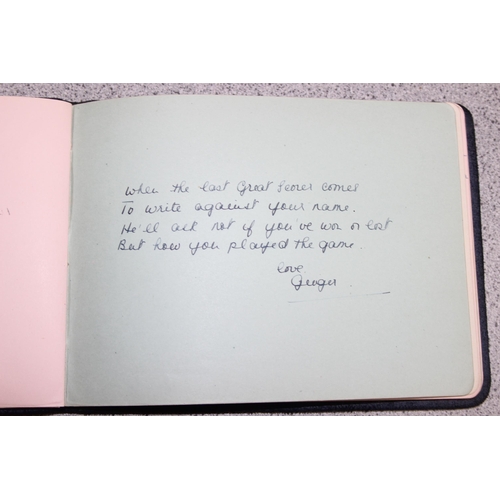 When the last Great Scorer comes
To write against your name.
He'll ask not if you've won or lost
But how you played the game.
love
Ginger